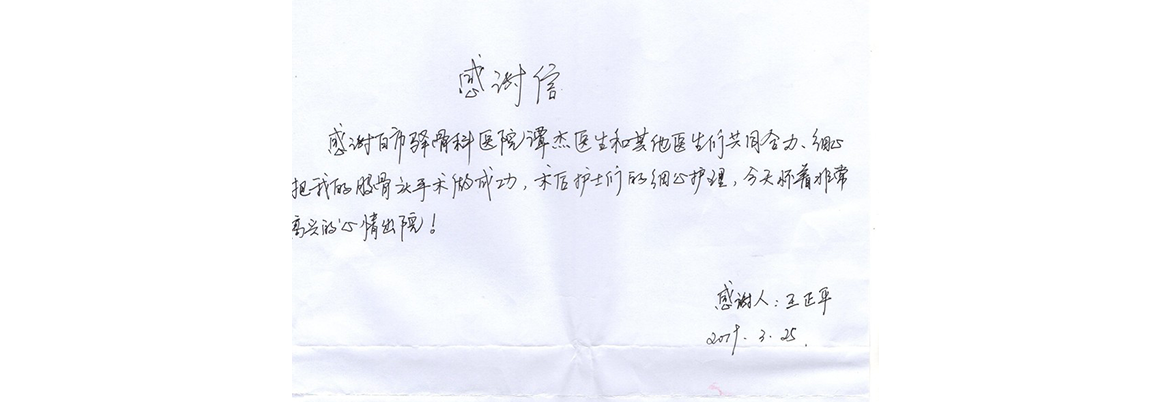 感谢信
感谢白市驿骨科医院谭杰医生和其他医生们共同合力、细心
把我的股骨头手术做成功，术后护士们的细心护理，今天怀着非常
高兴的心情出院！
感谢人：王正平
2019.3.25.